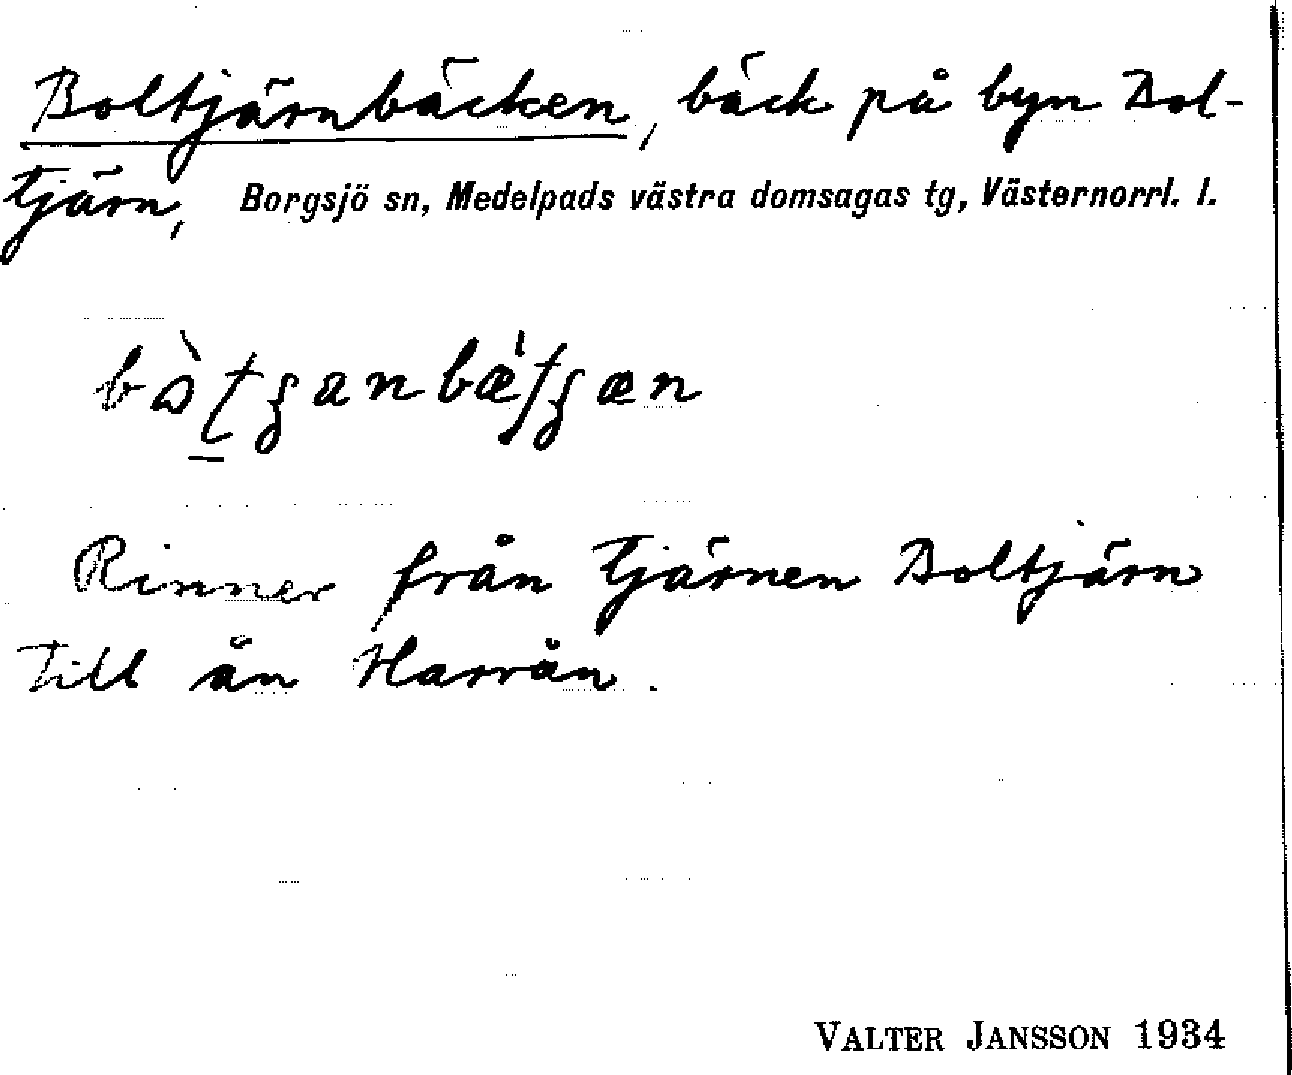 Boltjärnbäcken, bäck på byn Bol-
tjärn, Borgsjö sn, Medelpads västra domsagas tg, Västernorrl. l.
Rinner från tjärnen Boltjärn
till ån Harrån.
VALTER JANSSON 1934